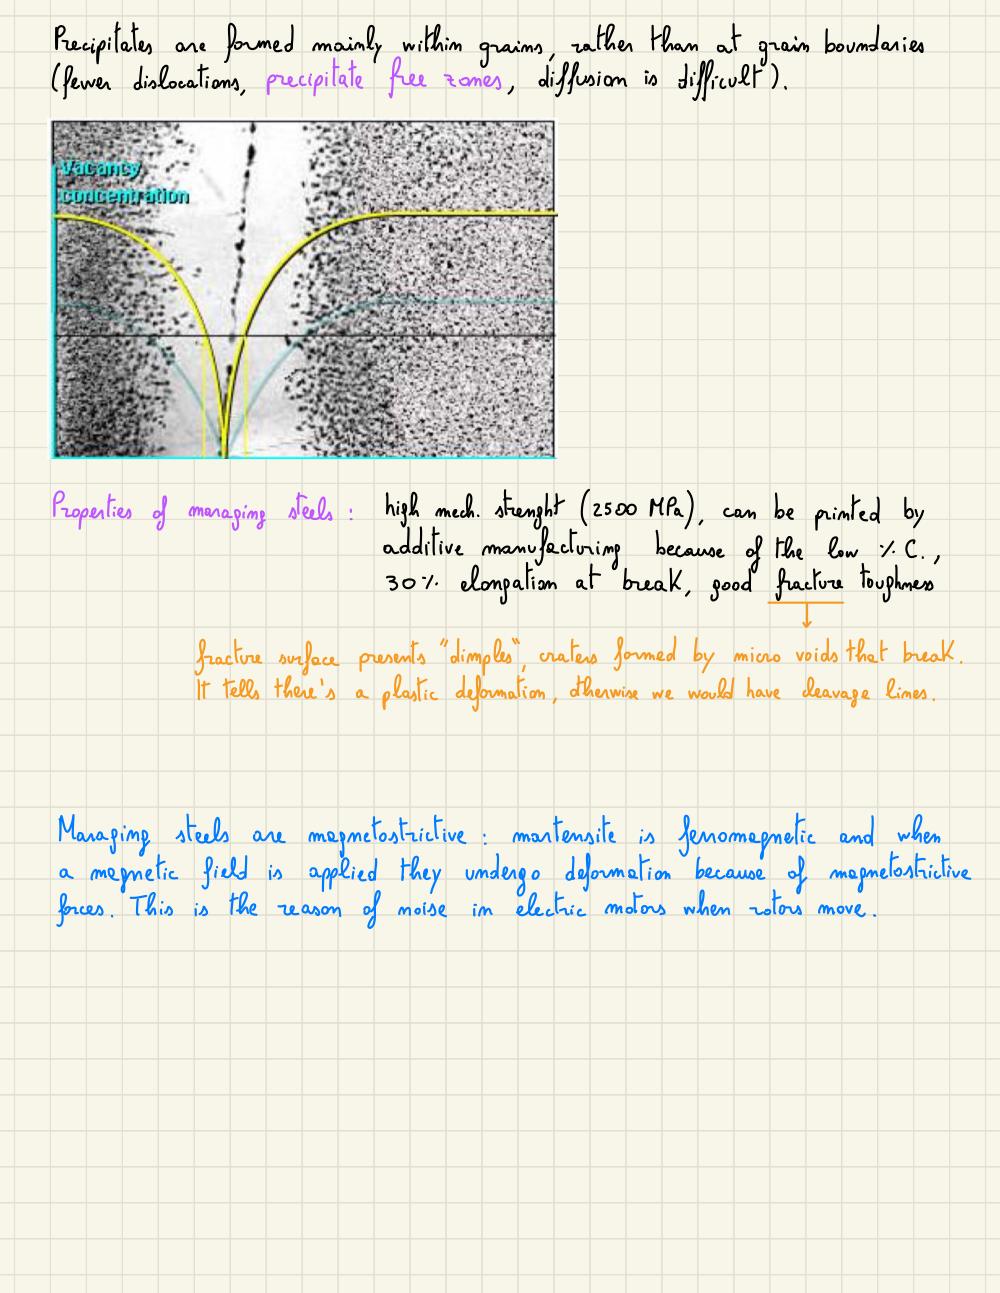 Precipitates are formed mainly within grains, rather than at grain boundaries
(fewer dislocations, precipitate free zones, diffusion is difficult).
Vacancy
concentration
Properties of maraging steels : high mech. strenght (2500 MPa), can be printed by
additive manufacturing because of the low % C.,
30% elongation at break, good fracture toughness
fracture surface presents "dimples", craters formed by micro voids that break.
It tells there's a plastic deformation, otherwise we would have cleavage lines.
Maraging steels are magnetostrictive : martensite is ferromagnetic and when
a magnetic field is applied they undergo deformation because of magnetostrictive
forces. This is the reason of noise in electric motors when rotors move.